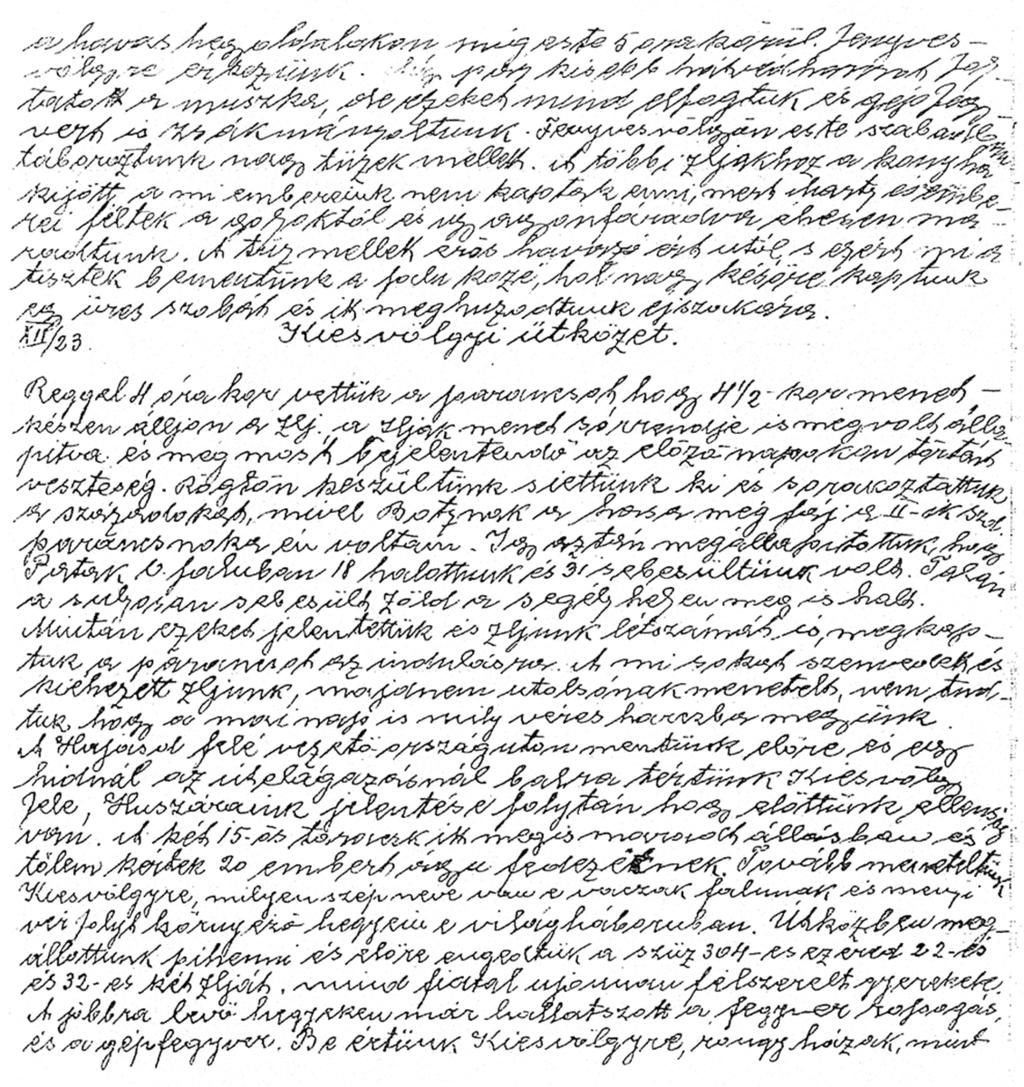 a havas hegyoldalakon mig este 5 óra körül. Fenyves-
völgyre érkezünk. Még pár kisebb hátvédharczot foly-
tatott a muszka, de ezeket mind elfogtuk és gépfegy
vert is zsákmányoltunk. Fenyvesvölgyön este szabadba
táboroztunk nagy tüzek mellett. A többi zljakhoz a konyha
kijött, a mi embereink nem kaptak enni, mert Hartz és embe-
rei féltek a golyóktól és igy agyonfáradva éhesen ma
radtunk. A tüz mellett erős havazó ért utól, s ezért mi a
tisztek bementünk a falu közé, hol nagy későre kaptunk
egy üres szobát és itt meghuzodtunk éjszakára.
XII/23. Kiesvölgyi ütközet.
Reggel 4 órakor vettük a parancsot hogy 4 1/2-kor menet-
készen álljon a zlj. a zljak menet sórrendje is megvolt álla
pitva és még most bejelentendő az előző napokon történt
veszteség. Rögtön készültünk siettünk ki és sorakoztattuk
a századokat, mivel Botznak a hasa még fáj a II-ik szd
parancsnoka én voltam. Igy aztán megállapitottuk, hogy
Patak U. faluban 18 halottunk és 31 sebesültünk volt. Talán
a sulyosan sebesült Zöld a segélyhelyen meg is halt.
Miután ezeket jelentettük és zljunk létszámát is, megkap-
tuk a parancsot az indulásra. A mi sokat szenvedett és
kiéhezett zljunk, majdnem utolsónak menetelt, nem tud-
tuk, hogy a mai nap is mily véres harczba megyünk.
A Hajasd felé vezető országuton mentünk előre és egy
hidnál az útelágazásnál balra tértünk Kiesvölgy
fele, Huszáraink jelentése folytán hogy előttünk ellenség
van. A két 15-ös tarack itt mégis maradt állásban és
tőlem kértek 20 embert ágyu fedezetnek. Tovább meneteltünk
Kiesvölgyre, milyen szép neve van e vaczak falunak és mennyi
vér folyt környező hegyein e világháboruban. Útközben meg-
állottunk pihenni és előre engedtük a szüz 304-es ezred 22-és
és 32-es két zlját, mind fiatal ujonnan felszerelt gyerekek.
A jobbra levő hegyeken már hallatszott a fegyver ropogás,
és a gépfegyver. Be értünk Kiesvölgyre, rongy házak, mint